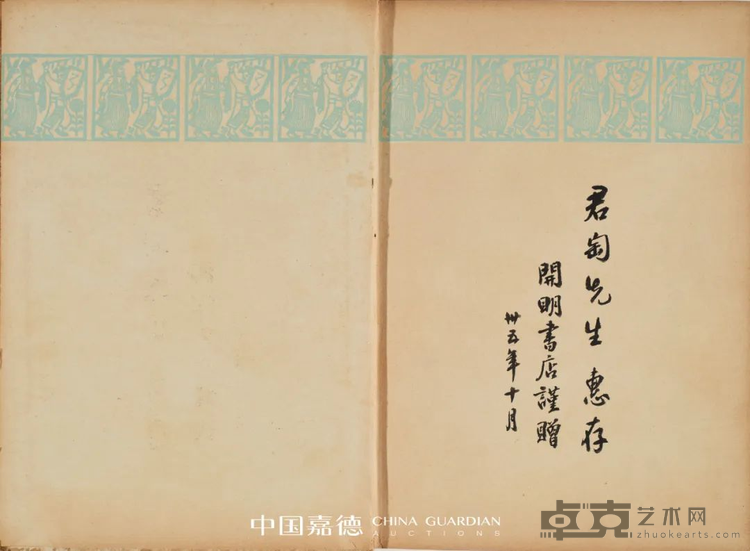 君匋先生 惠存
開明書店謹贈
卅五年十月
中国嘉德 CHINA GUARDIAN
AUCTIONS
卓克艺术网
zhuokearts.com